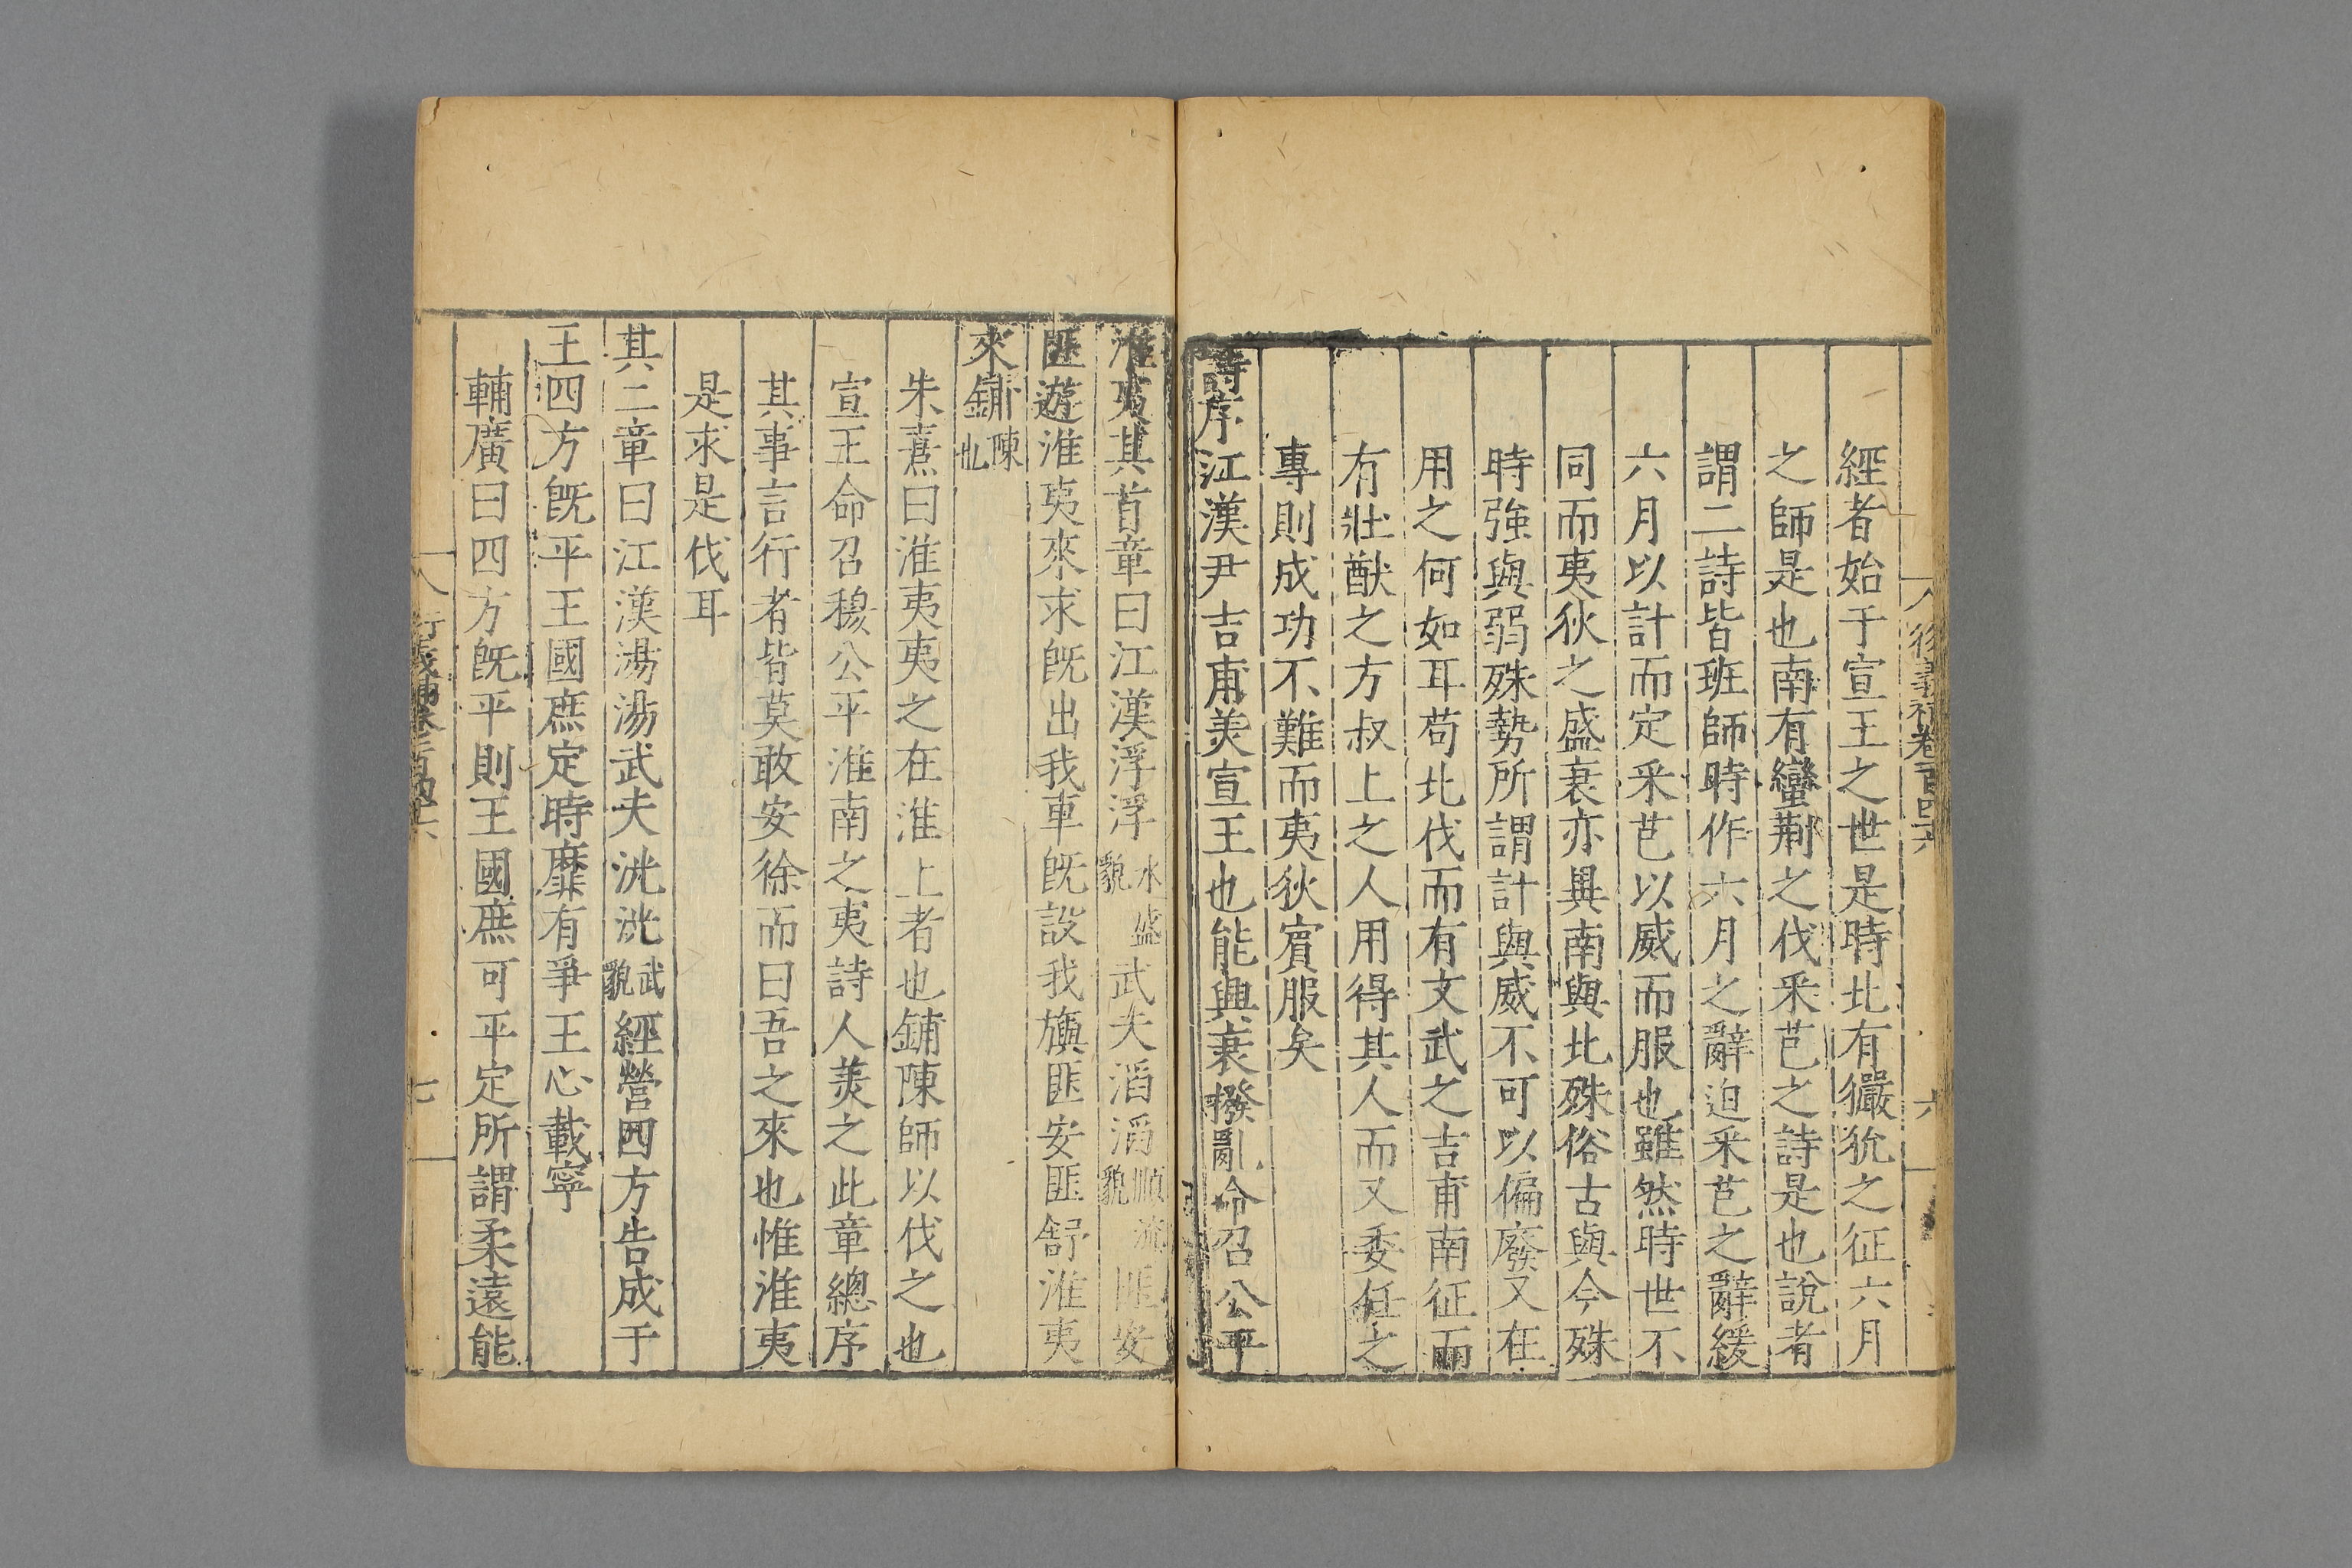 經者始于宣王之世是時北有玁狁之征六月
之師是也南有蠻荆之伐采芑之詩是也說者
謂二詩皆班師時作六月之辭迫采芑之辭緩
六月以計而定采芑以威而服也雖然時世不
同而夷狄之盛衰亦異南與北殊俗古與今殊
時強與弱殊勢所謂計與威不可以偏廢又在
用之何如耳苟北伐而有文武之吉甫南征而
有壯猷之方叔上之人用得其人而又委任之
專則成功不難而夷狄賓服矣
詩序江漢尹吉甫美宣王也能興衰撥亂命召公平
淮夷其首章曰江漢浮浮水盛貌武夫滔滔順流貌匪安
匪遊淮夷來求旣出我車旣設我旟匪安匪舒淮夷
來鋪陳也
朱熹曰淮夷夷之在淮上者也鋪陳師以伐之也
宣王命召穆公平淮南之夷詩人美之此章總序
其事言行者皆莫敢安徐而曰吾之來也惟淮夷
是求是伐耳
其二章曰江漢湯湯武夫洸洸武貌經營四方告成于
王四方旣平王國庶定時靡有爭王心載寧
輔廣曰四方旣平則王國庶可平定所謂柔遠能
七